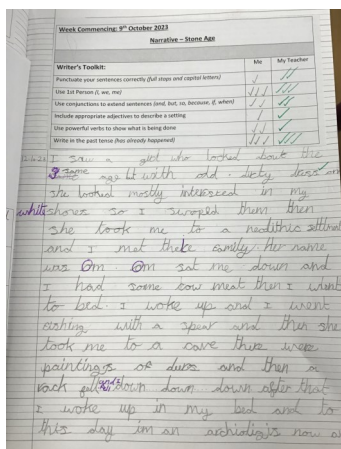 Week Commencing: 9th October 2023
Narrative – Stone Age
Writer's Toolkit:
Me
My Teacher
Punctuate your sentences correctly (full stops and capital letters)
Use 1st Person (I, we, me)
Use conjunctions to extend sentences (and, but, so, because, if, when)
Include appropriate adjectives to describe a setting
Use powerful verbs to show what is being done
Write in the past tense (has already happened)
I saw a girl who looked about the
same age with odd dirty dress on
she looked mostly interested in my
white shores so I swoped them then
she took me to a neolithic settlment
and I met there family. Her name
was Om. Om sat me down and
I had some cow meat then I went
to bed. I woke up and I went
fishing with a spear and then she
took me to a cave there were
paintings of and then a
rock fell and I down down.. down after that
I woke up in my bed and to
this day im an archioligis now